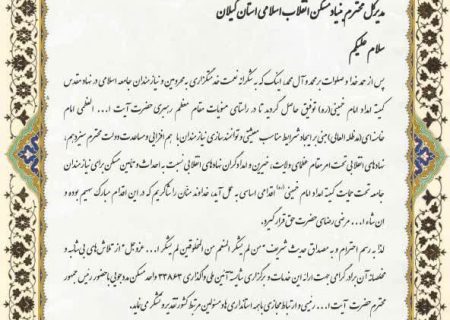 مدیرکل محترم بنیاد مسکن انقلاب اسلامی استان گیلان
سلام علیکم
پس از حمد خدا و صلوات بر محمد و آل محمد، اینک که به شکرانه نعمت خدمتگزاری به محرومین و نیازمندان جامعه اسلامی در نهاد مقدس
کمیته امداد امام خمینی (ره) توفیق حاصل گردید تا در راستای منویات مقام معظم رهبری حضرت آیت ا... العظمی امام
خامنه ای (مدظله العالی) مبنی بر ایجاد شرایط مناسب معیشتی و توانمندسازی نیازمندان با هم افزایی و مساعدت دولت محترم سیزدهم،
نهادهای انقلابی تحت امر مقام عظمای ولایت، خیرین و امدادگران نهادهای انقلابی نسبت به احداث و تامین مسکن برای نیازمندان
جامعه تحت حمایت کمیته امداد امام خمینی (ره) اقدامی اساسی به عمل آید، خداوند منان را شاکریم که در این اقدام مبارک سهیم بوده و
ان شاء ا... مرضی رضای حضرت حق قرار گیرد.
لذا به رسم احترام و به مصداق حدیث شریف "من لم یشکر المنعم من المخلوقین لم یشکر ا... عزوجل" از تلاش های بی شائبه و
مخلصانه آن برادر گرامی جهت ارائه این خدمات و برگزاری شایسته آئین ملی واگذاری ۳۴۸۶۳ واحد مسکن مددجویی با حضور رئیس جمهور
محترم حضرت آیت ا... رئیسی و ارتباط مجازی با همه استانداری ها و مسئولین مرتبط کشور تقدیر و تشکر می نماید.